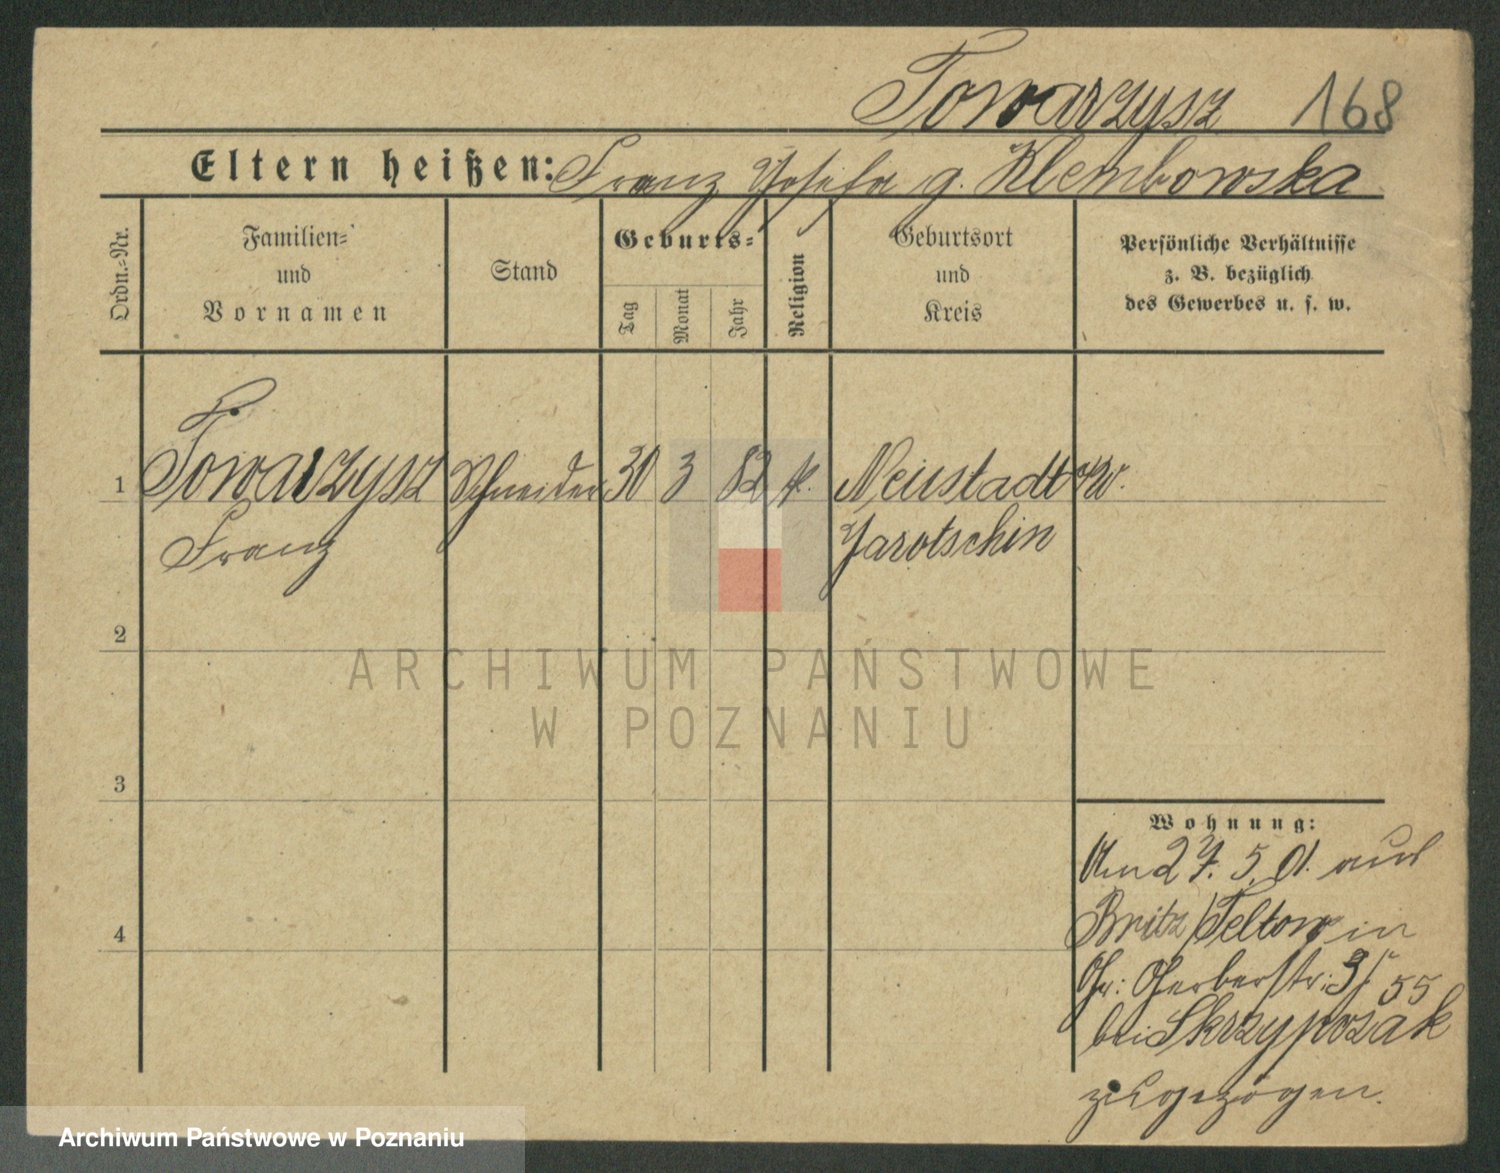 Towarzysz 168
Eltern heißen: Franz Josefa g. Klembowska
Ordn.-Nr.
Familien-
und
Vornamen
Stand
Geburts-
Tag
Monat
Jahr
Religion
Geburtsort
und
Kreis
Persönliche Verhältnisse
z. B. bezüglich
des Gewerbes u. s. w.
1 Towarzysz Schneider 30 3 82 k. Neustadt a/W.
Franz Jarotschin
2
3
4
ARCHIWUM PAŃSTWOWE
W POZNANIU
Wohnung:
Am 27. 5. 01. aus
Britz/Teltow in
Gr: Gerberstr: 55
bei Skrzypczak
zugezogen.
Archiwum Państwowe w Poznaniu